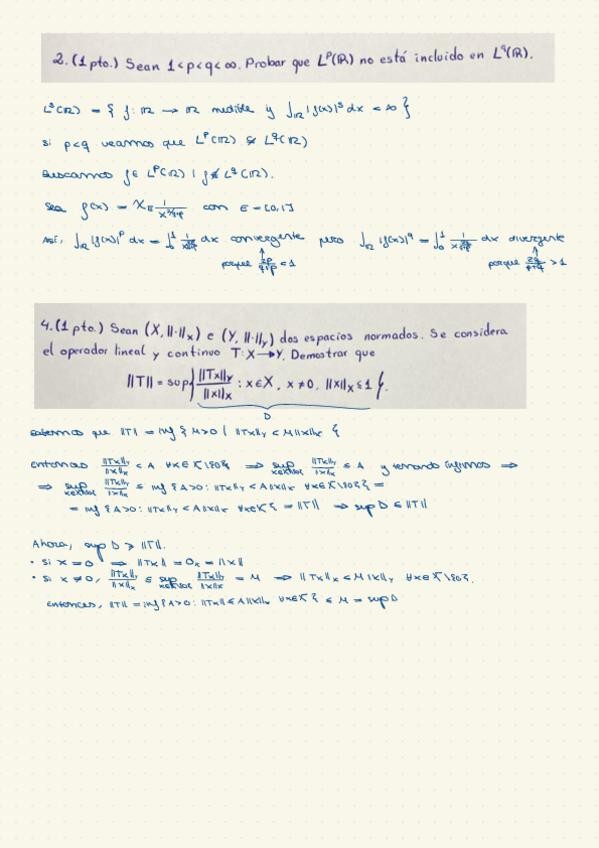 2. (1 pto.) Sean 1<p<q<∞. Probar que Lᵖ(ℝ) no está incluido en L^q(ℝ).
Lˢ(ℝ) = { f: ℝ → ℝ medible y ∫_ℝ |f(x)|ˢ dx < ∞ }
si p<q veamos que Lᵖ(ℝ) ⊄ L^q(ℝ)
Buscamos f ∈ Lᵖ(ℝ) | f ∉ L^q(ℝ).
Sea f(x) = χ_E 1/x^{2/(q+p)} con E = [0,1]
Así, ∫_ℝ |f(x)|ᵖ dx = ∫₀¹ dx convergente pero ∫_ℝ |f(x)|^q = ∫₀¹ dx divergente
porque 2p/(q+p) < 1 porque 2q/(p+q) > 1
4. (1 pto.) Sean (X, ||·||_X) e (Y, ||·||_Y) dos espacios normados. Se considera
el operador lineal y continuo T: X→Y. Demostrar que
||T|| = sup{ ||Tx||_Y / ||x||_X : x∈X, x≠0, ||x||_X ≤ 1 }.
D
sabemos que ||T|| = inf { M>0 | ||Tx||_Y < M||x||_X }
entonces ||Tx||_Y / ||x||_X < A ∀x∈X\{0} ⇒ sup_{x∈X\{0}} ||Tx||_Y / ||x||_X ≤ A y tomando ínfimos ⇒
⇒ sup_{x∈X\{0}} ||Tx||_Y / ||x||_X ≤ inf { A>0 : ||Tx||_Y < A||x||_X ∀x∈X\{0} } =
= inf { A>0 : ||Tx||_Y < A||x||_X ∀x∈X } = ||T|| ⇒ sup D ≤ ||T||
Ahora, sup D ≥ ||T||.
· si x=0 ⇒ ||Tx|| = 0_X = ||x||
· si x≠0, ||Tx||_Y / ||x||_X ≤ sup_{x∈X\{0}} ||Tx||_Y / ||x||_X = M ⇒ ||Tx||_X < M||x||_Y ∀x∈X\{0}.
entonces, ||T|| = inf { A>0 : ||Tx||_Y ≤ A||x||_X ∀x∈X } ≤ M = sup D